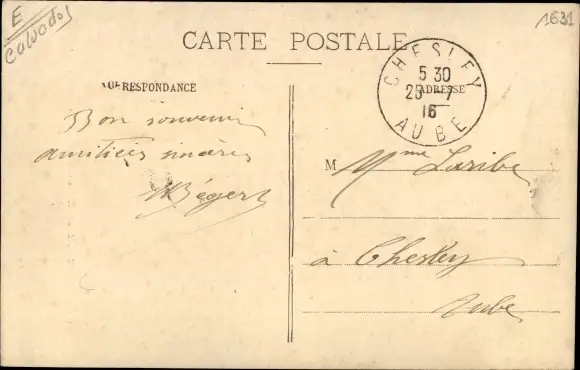 E
Calvados
1631
CARTE POSTALE
RESPONDANCE
ADRESSE
CHESLEY
5 30
25 - 7
16
AUBE
Bon souvenir
amitiés sincères
Bégert
M Mme Laribe
à Chesley
Aube